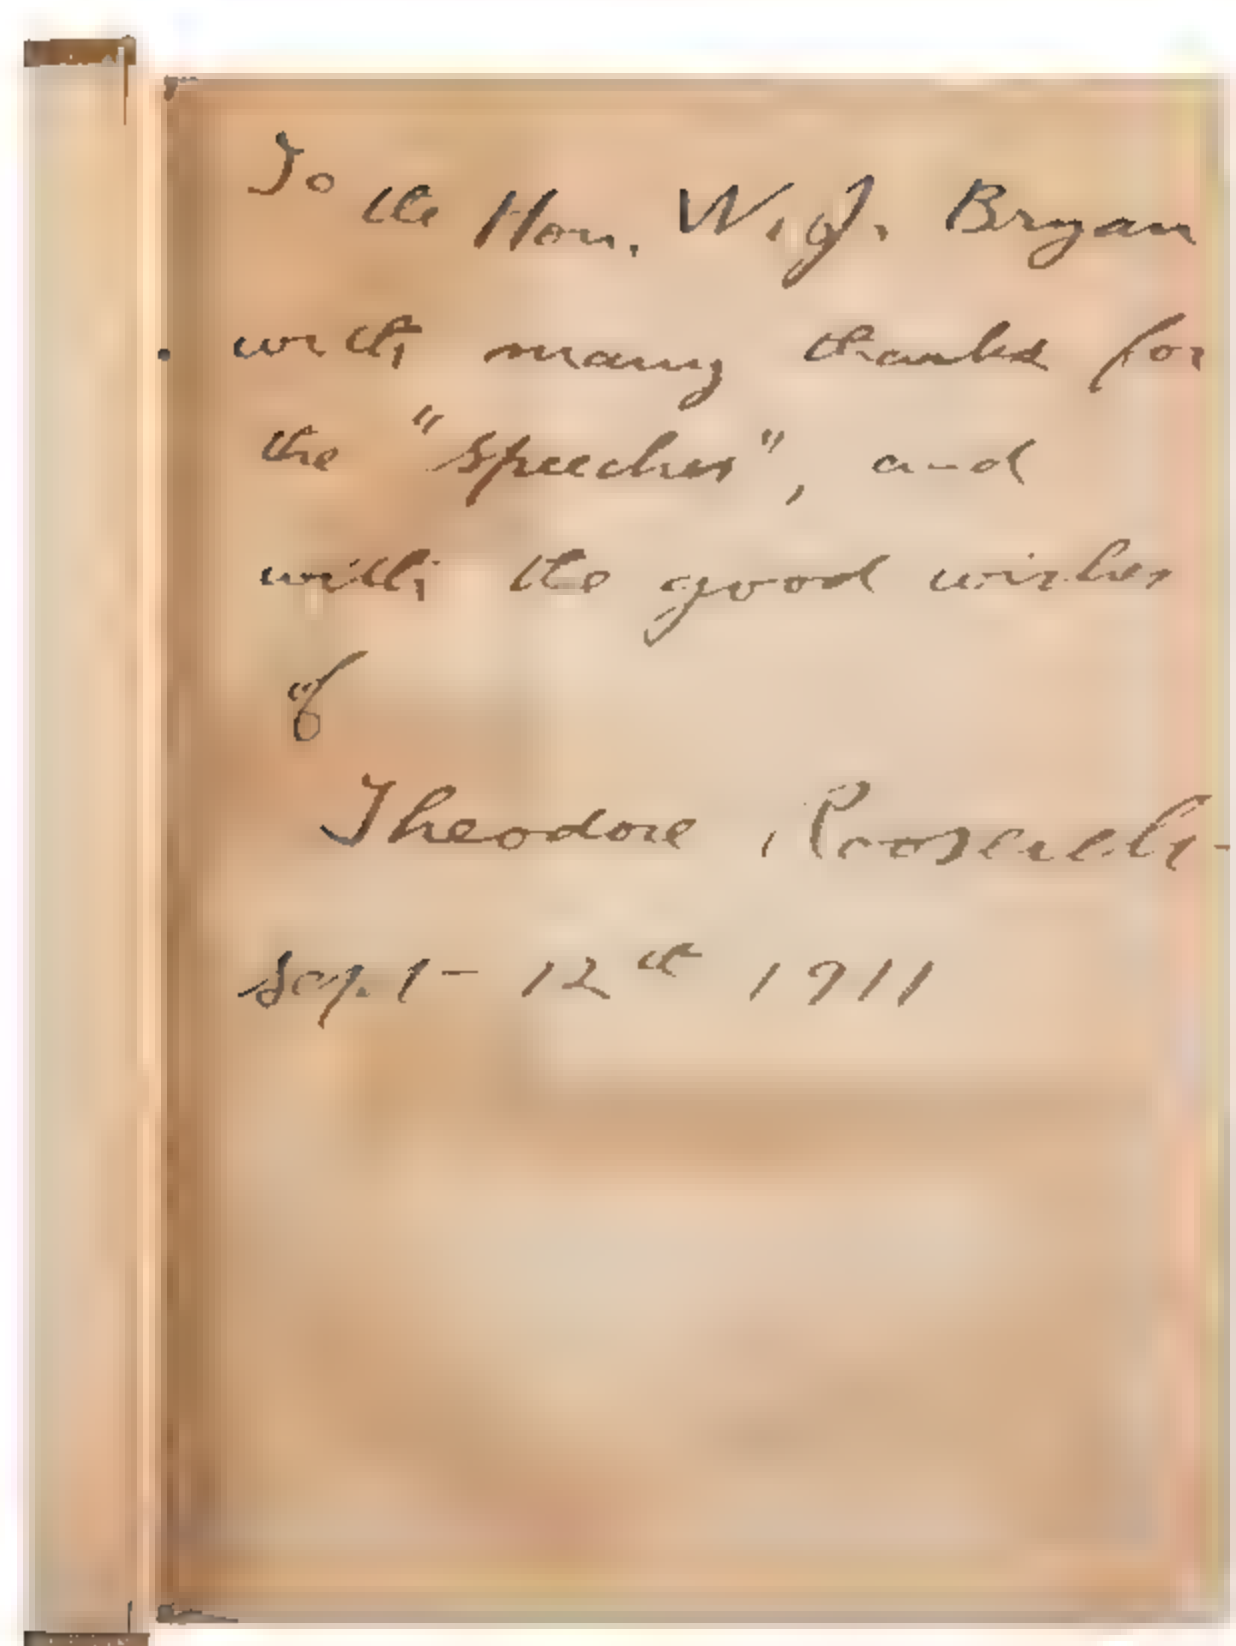 To the Hon. W. J. Bryan
with many thanks for
the "speeches", and
with the good wishes
of
Theodore Roosevelt
Sept - 12th 1911